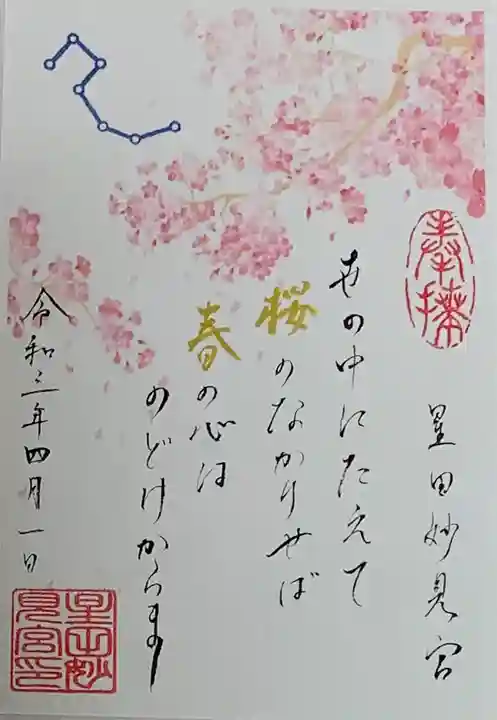 奉拝
星田妙見宮
世の中にたえて
桜のなかりせば
春の心は
のどけからまし
令和三年四月一日
星田妙見宮印